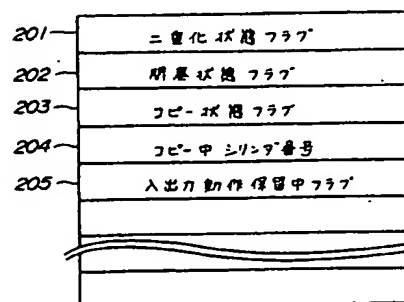 201 二重化状態フラグ
202 閉塞状態フラグ
203 コピー状態フラグ
204 コピー中シリンダ番号
205 入出力動作保留中フラグ